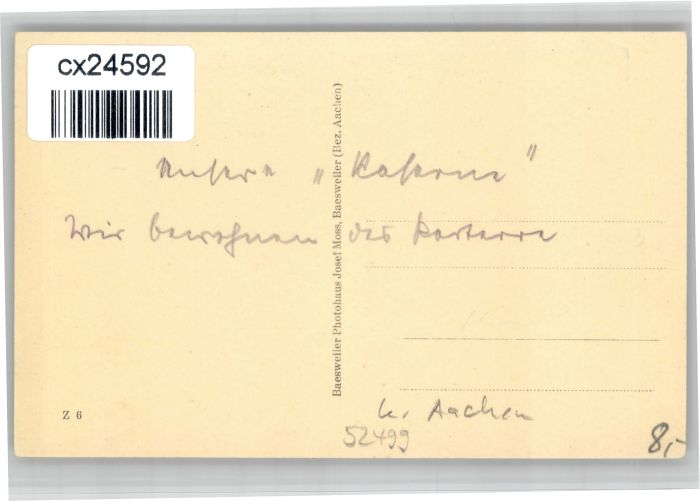 cx24592
unsere „Kaserne"
Wir bewohnen das Parterre
Baesweiler Photohaus Josef Moss, Baesweiler (Bez. Aachen)
Z 6
Kr. Aachen
52499
8,-